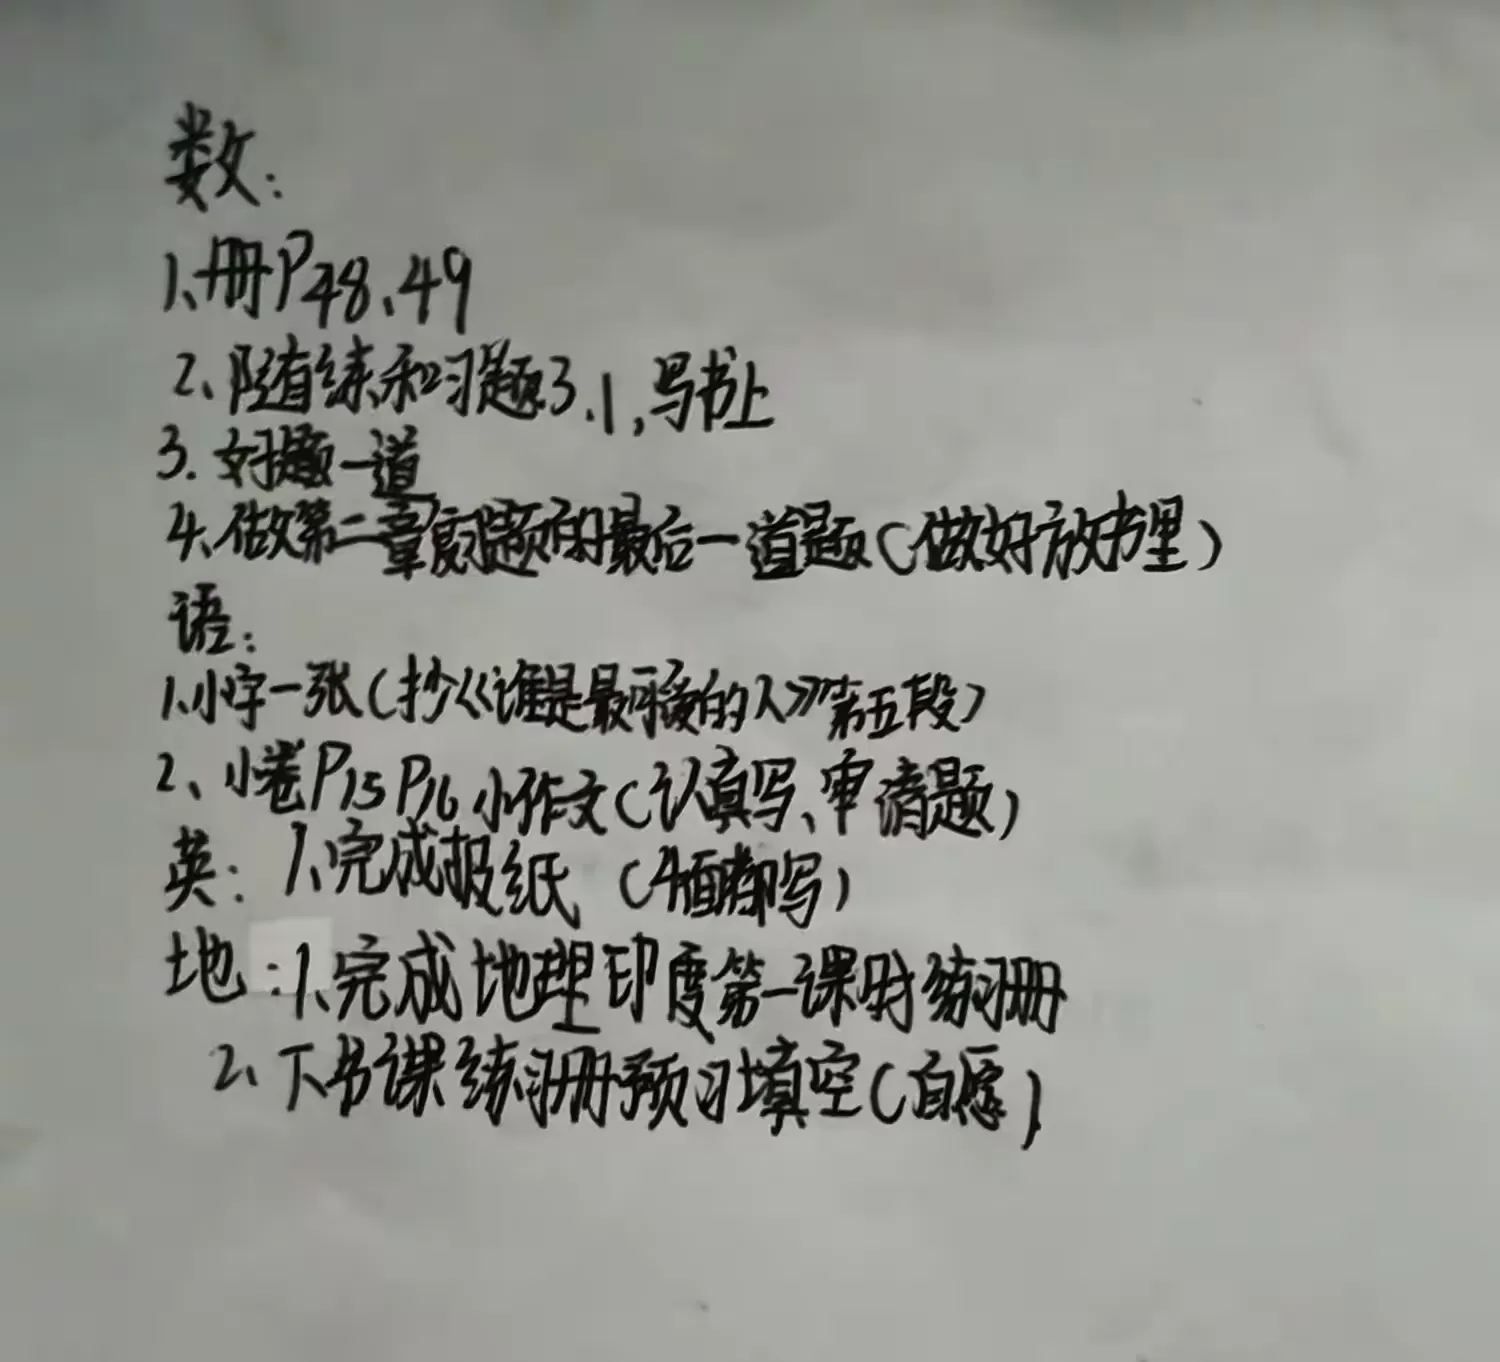 数：
1、册P48、49
2、随练和习题3.1，写书上
3. 好题一道
4、做第二章复习题的最后一道题（做好放书里）
语：
1.小字一张（抄《谁是最可爱的人》第五段）
2、小卷P15 P16 小作文（认真写、审清题）
英：1、完成报纸（4面都写）
地：1、完成地理印度第一课时练习册
2、下书课练习册预习填空（自愿）